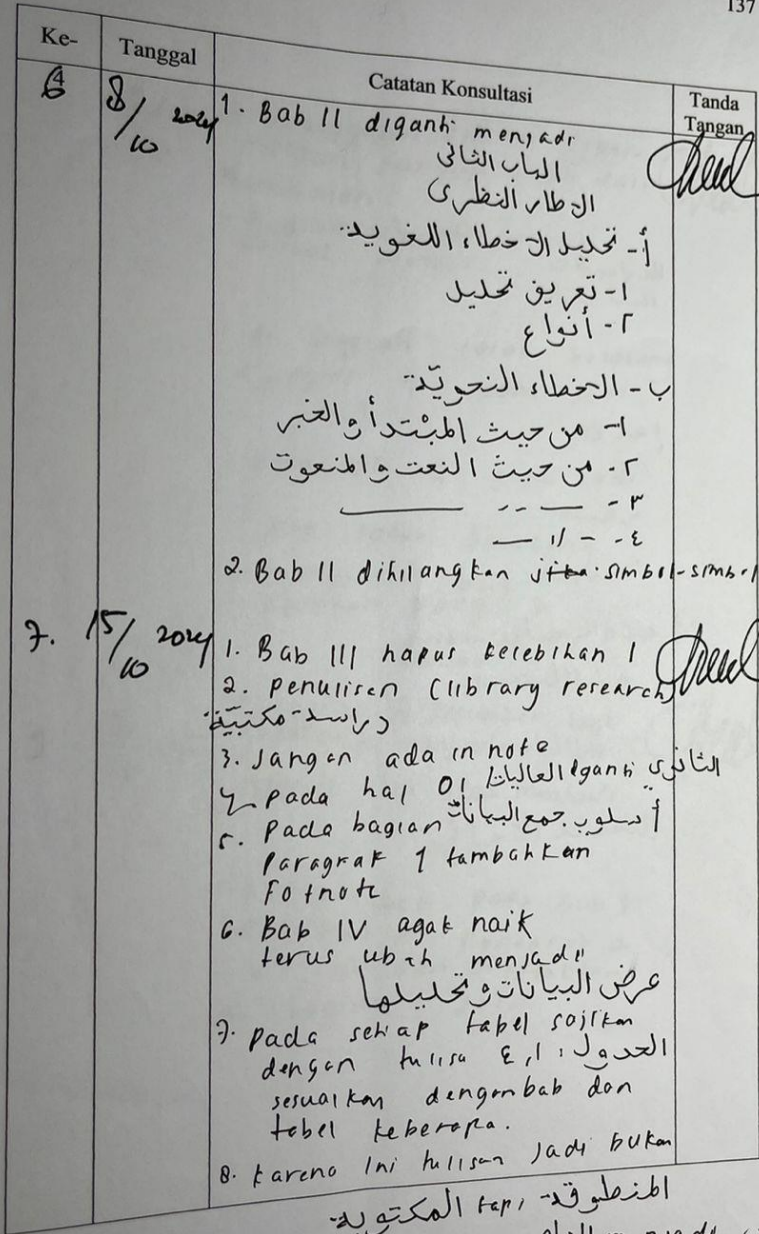 137
Ke-
Tanggal
Catatan Konsultasi
Tanda
Tangan
8/10 2024
1. Bab II diganti menjadi
الباب الثاني
الإطار النظري
أ- تحليل الأخطاء اللغوية
١- تعريف تحليل
٢- أنواع
ب- الأخطاء النحويّة
١- من حيث المبْتدأ والخبر
٢- من حيث النعت والمنعوت
٣-
٤-
2. Bab II dihilangkan simbol-simbol
7. 15/10 2024
1. Bab III hapus kelebihan 1
2. Penulisan (library research)
دراسة مكتبيّة
3. Jangan ada in note
4. pada hal 01 العاليات ganti الثانوي
5. Pada bagian أسلوب جمع البيانات
Paragrak 1 tambahkan
Fotnote
6. Bab IV agak naik
terus ubah menjadi
عرض البيانات وتحليلها
7. Pada setiap tabel sajikan
dengan tulisa الجدول: ٤،١
sesuaikan dengan bab dan
tabel keberapa.
8. karena ini tulisan jadi bukan
المنطوقة tapi المكتوبة